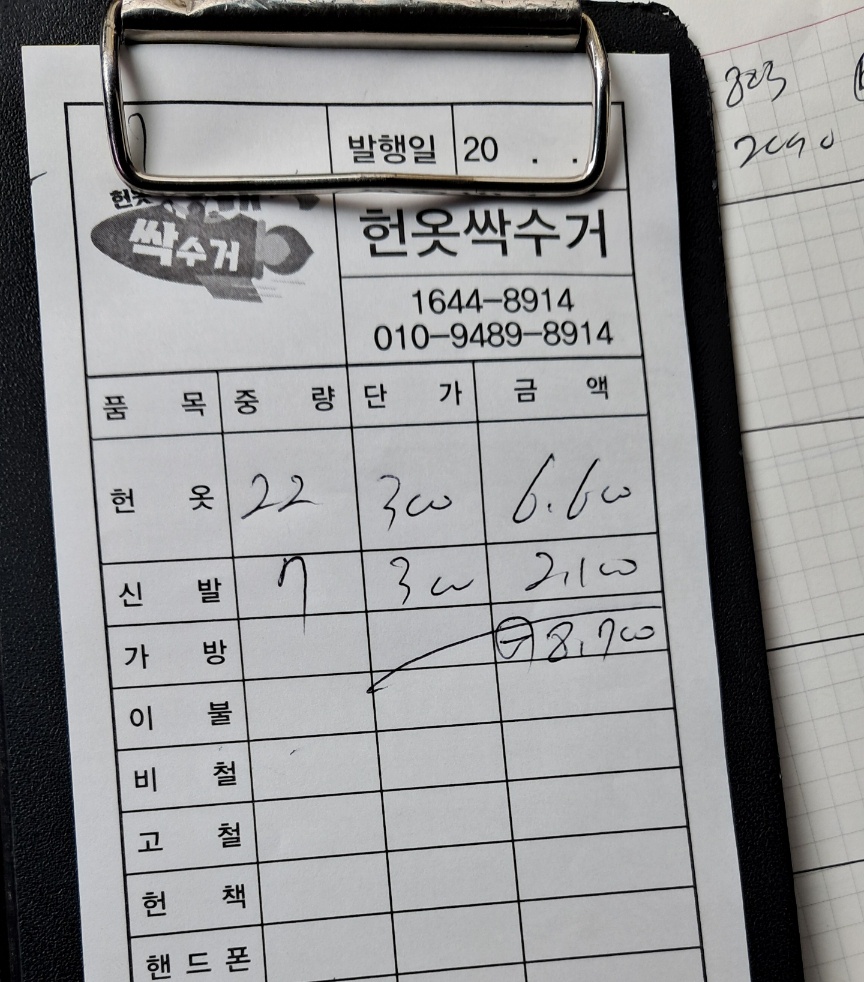 발행일 20 . .
헌옷
싹수거
헌옷싹수거
1644-8914
010-9489-8914
품 목 중 량 단 가 금 액
헌 옷 22 300 6.600
신 발 7 300 2,100
가 방 계 8,700
이 불
비 철
고 철
헌 책
핸 드 폰